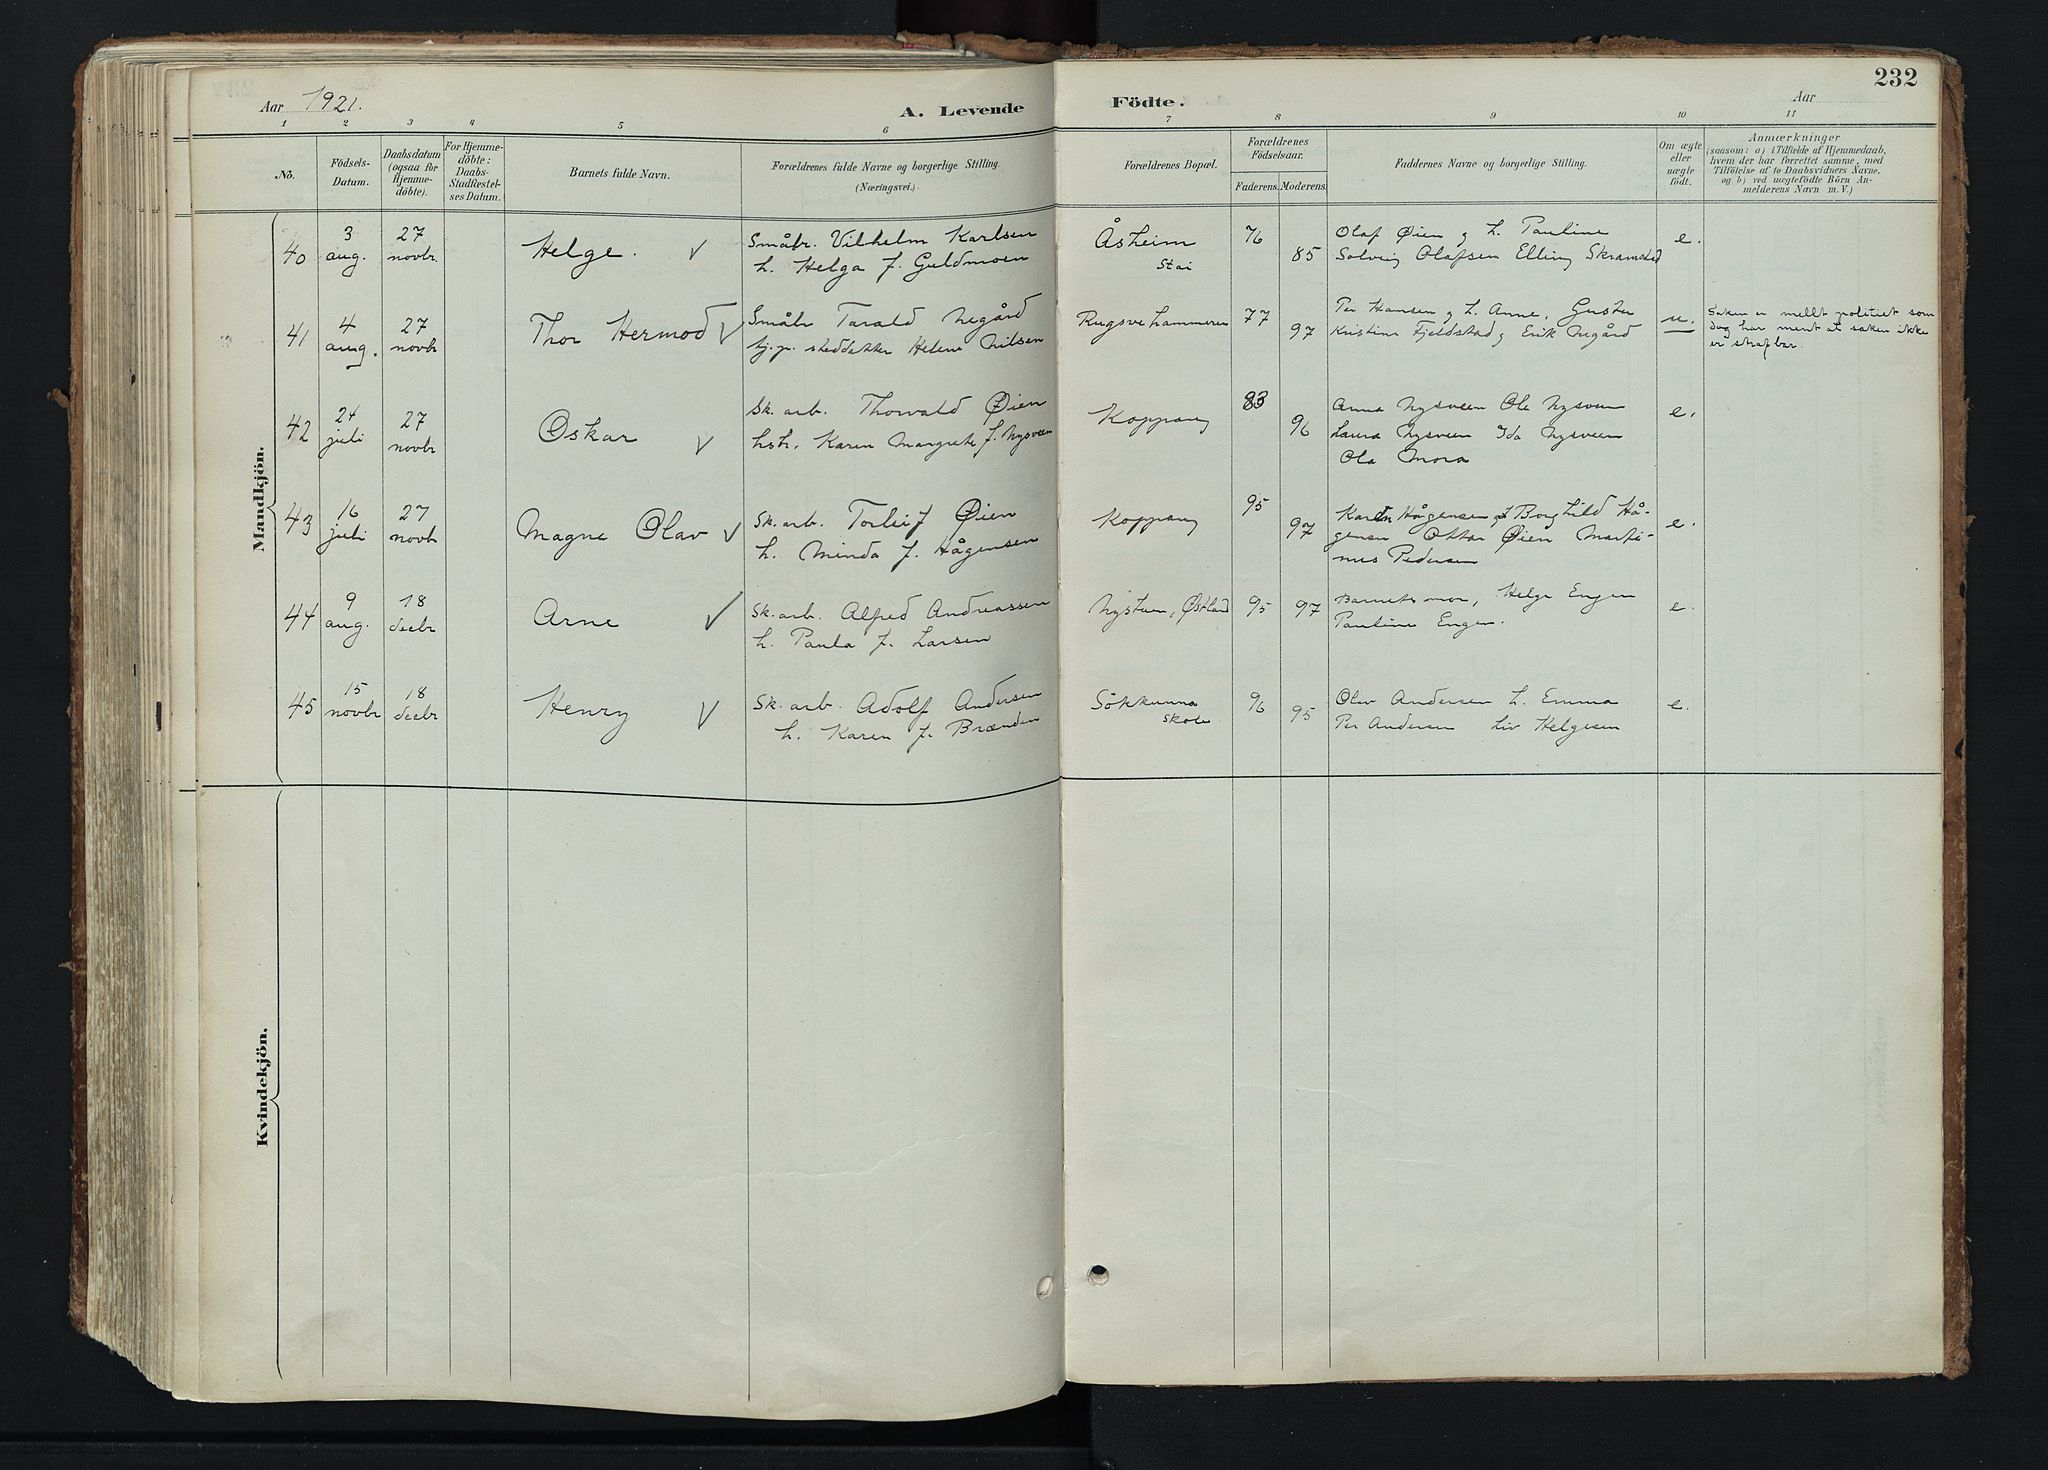 232
Aar 1921.
A. Levende Födte.
Aar
1 2 3 4 5 6 7 8 9 10 11
No.
Födsels-Datum.
Daabsdatum (ogsaa for Hjemmedöbte).
For Hjemmedöbte: Daabs-Stadfæstelses Datum.
Barnets fulde Navn.
Forældrenes fulde Navne og borgerlige Stilling.
(Næringsvei.)
Forældrenes Bopæl.
Forældrenes Födselsaar.
Faderens. Moderens.
Faddernes Navne og borgerlige Stilling.
Om ægte eller uægte födt.
Anmærkninger
(saasom: a) i Tilfælde af Hjemmedaab,
hvem der har forrettet samme, med
Tilföielse af to Daabsvidners Navne.
og b) ved uægtefödte Börn An-
melderens Navn m. V.)
Mandkjön.
40 3 aug. 27 novbr. Helge. Småbr. Vilhelm Karlsen
h. Helga f. Guldmoen
Åsheim
Stai
76 85
Olaf Øien og h. Pauline
Solveig Olafsen Elling Skramstad
e.
41 4 aug. 27 novbr Thor Hermod Småbr Tarald Negård
tj.p. steddatter Helene Nilsen
Rugsvehammeren
77 97
Per Hansen og h. Anne,
Kristine Fjeldstad og Erik Negård
u.
Saken er meldt politiet som
dog har ment at saken ikke
er strafbar.
42 24 juli 27 novbr Oskar Sk. arb. Thorvald Øien
hsh. Karen Margrete f. Nysveen
Koppang
83 96
Anna Nysveen Ole Nysveen
Laura Nysveen Ida Nysveen
Ola Mora
e.
43 16 juli 27 novbr Magne Olav Sk. arb. Torleif Øien
h. Minda f. Hågensen
Koppang
95 97
Karen Hågensen Borghild Hå-
gensen Ottar Øien Marti-
nus Pedersen
e.
44 9 aug. 18 decbr Arne Sk. arb. Alfred Andreassen
h. Paula f. Larsen
Nystuen, Østland
95 97
Barnets mor, Helge Engen
Pauline Engen.
e.
45 15 novbr 18 decbr Henry Sk. arb. Adolf Andersen
h. Karen f. Brænden
Søkkunna
skole
96 95
Olav Andersen h. Emma
Per Andersen Liv Helgesen
e.
Kvindekjön.